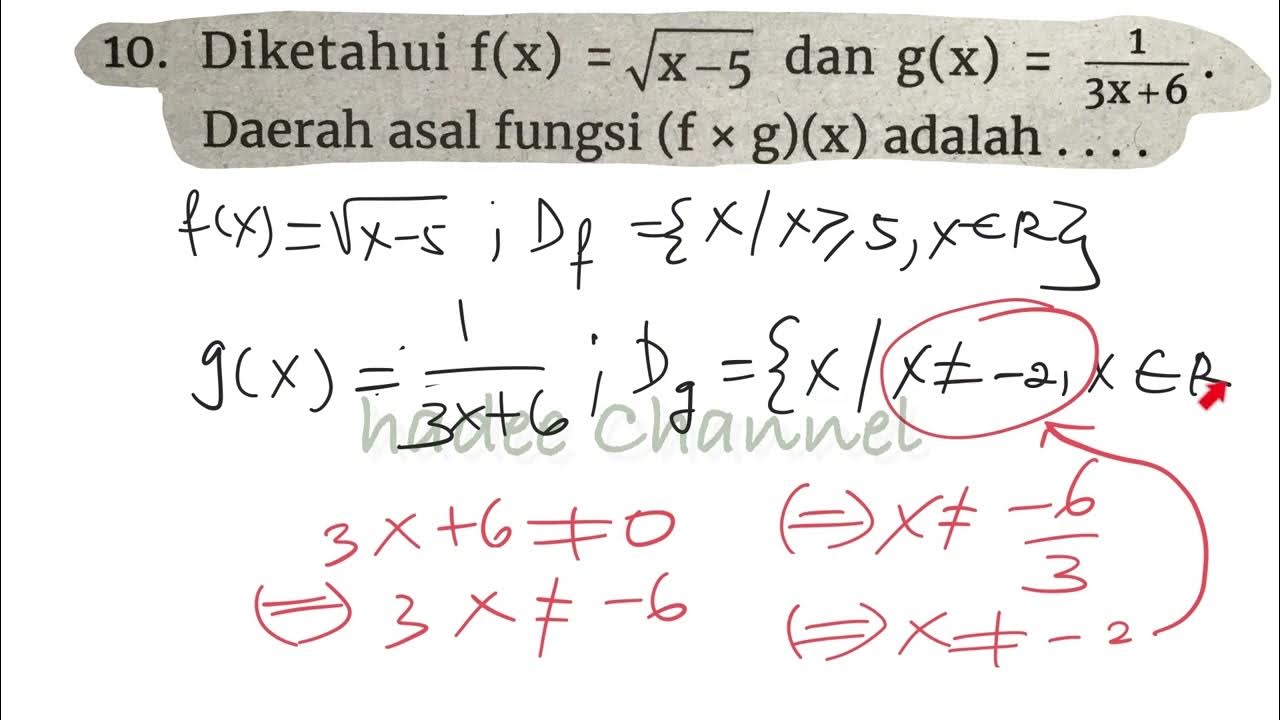 10. Diketahui f(x) = √x-5 dan g(x) = 1/3x+6.
Daerah asal fungsi (f × g)(x) adalah . . . .
f(x)=√x-5 ; Df ={x/x≥5, x∈R}
g(x) = 1/3x+6 ; Dg = {x/x≠-2, x∈R
hadee Channel
3x+6≠0 (⇒) x≠ -6/3
(⇒) 3x≠-6 (⇒) x≠-2